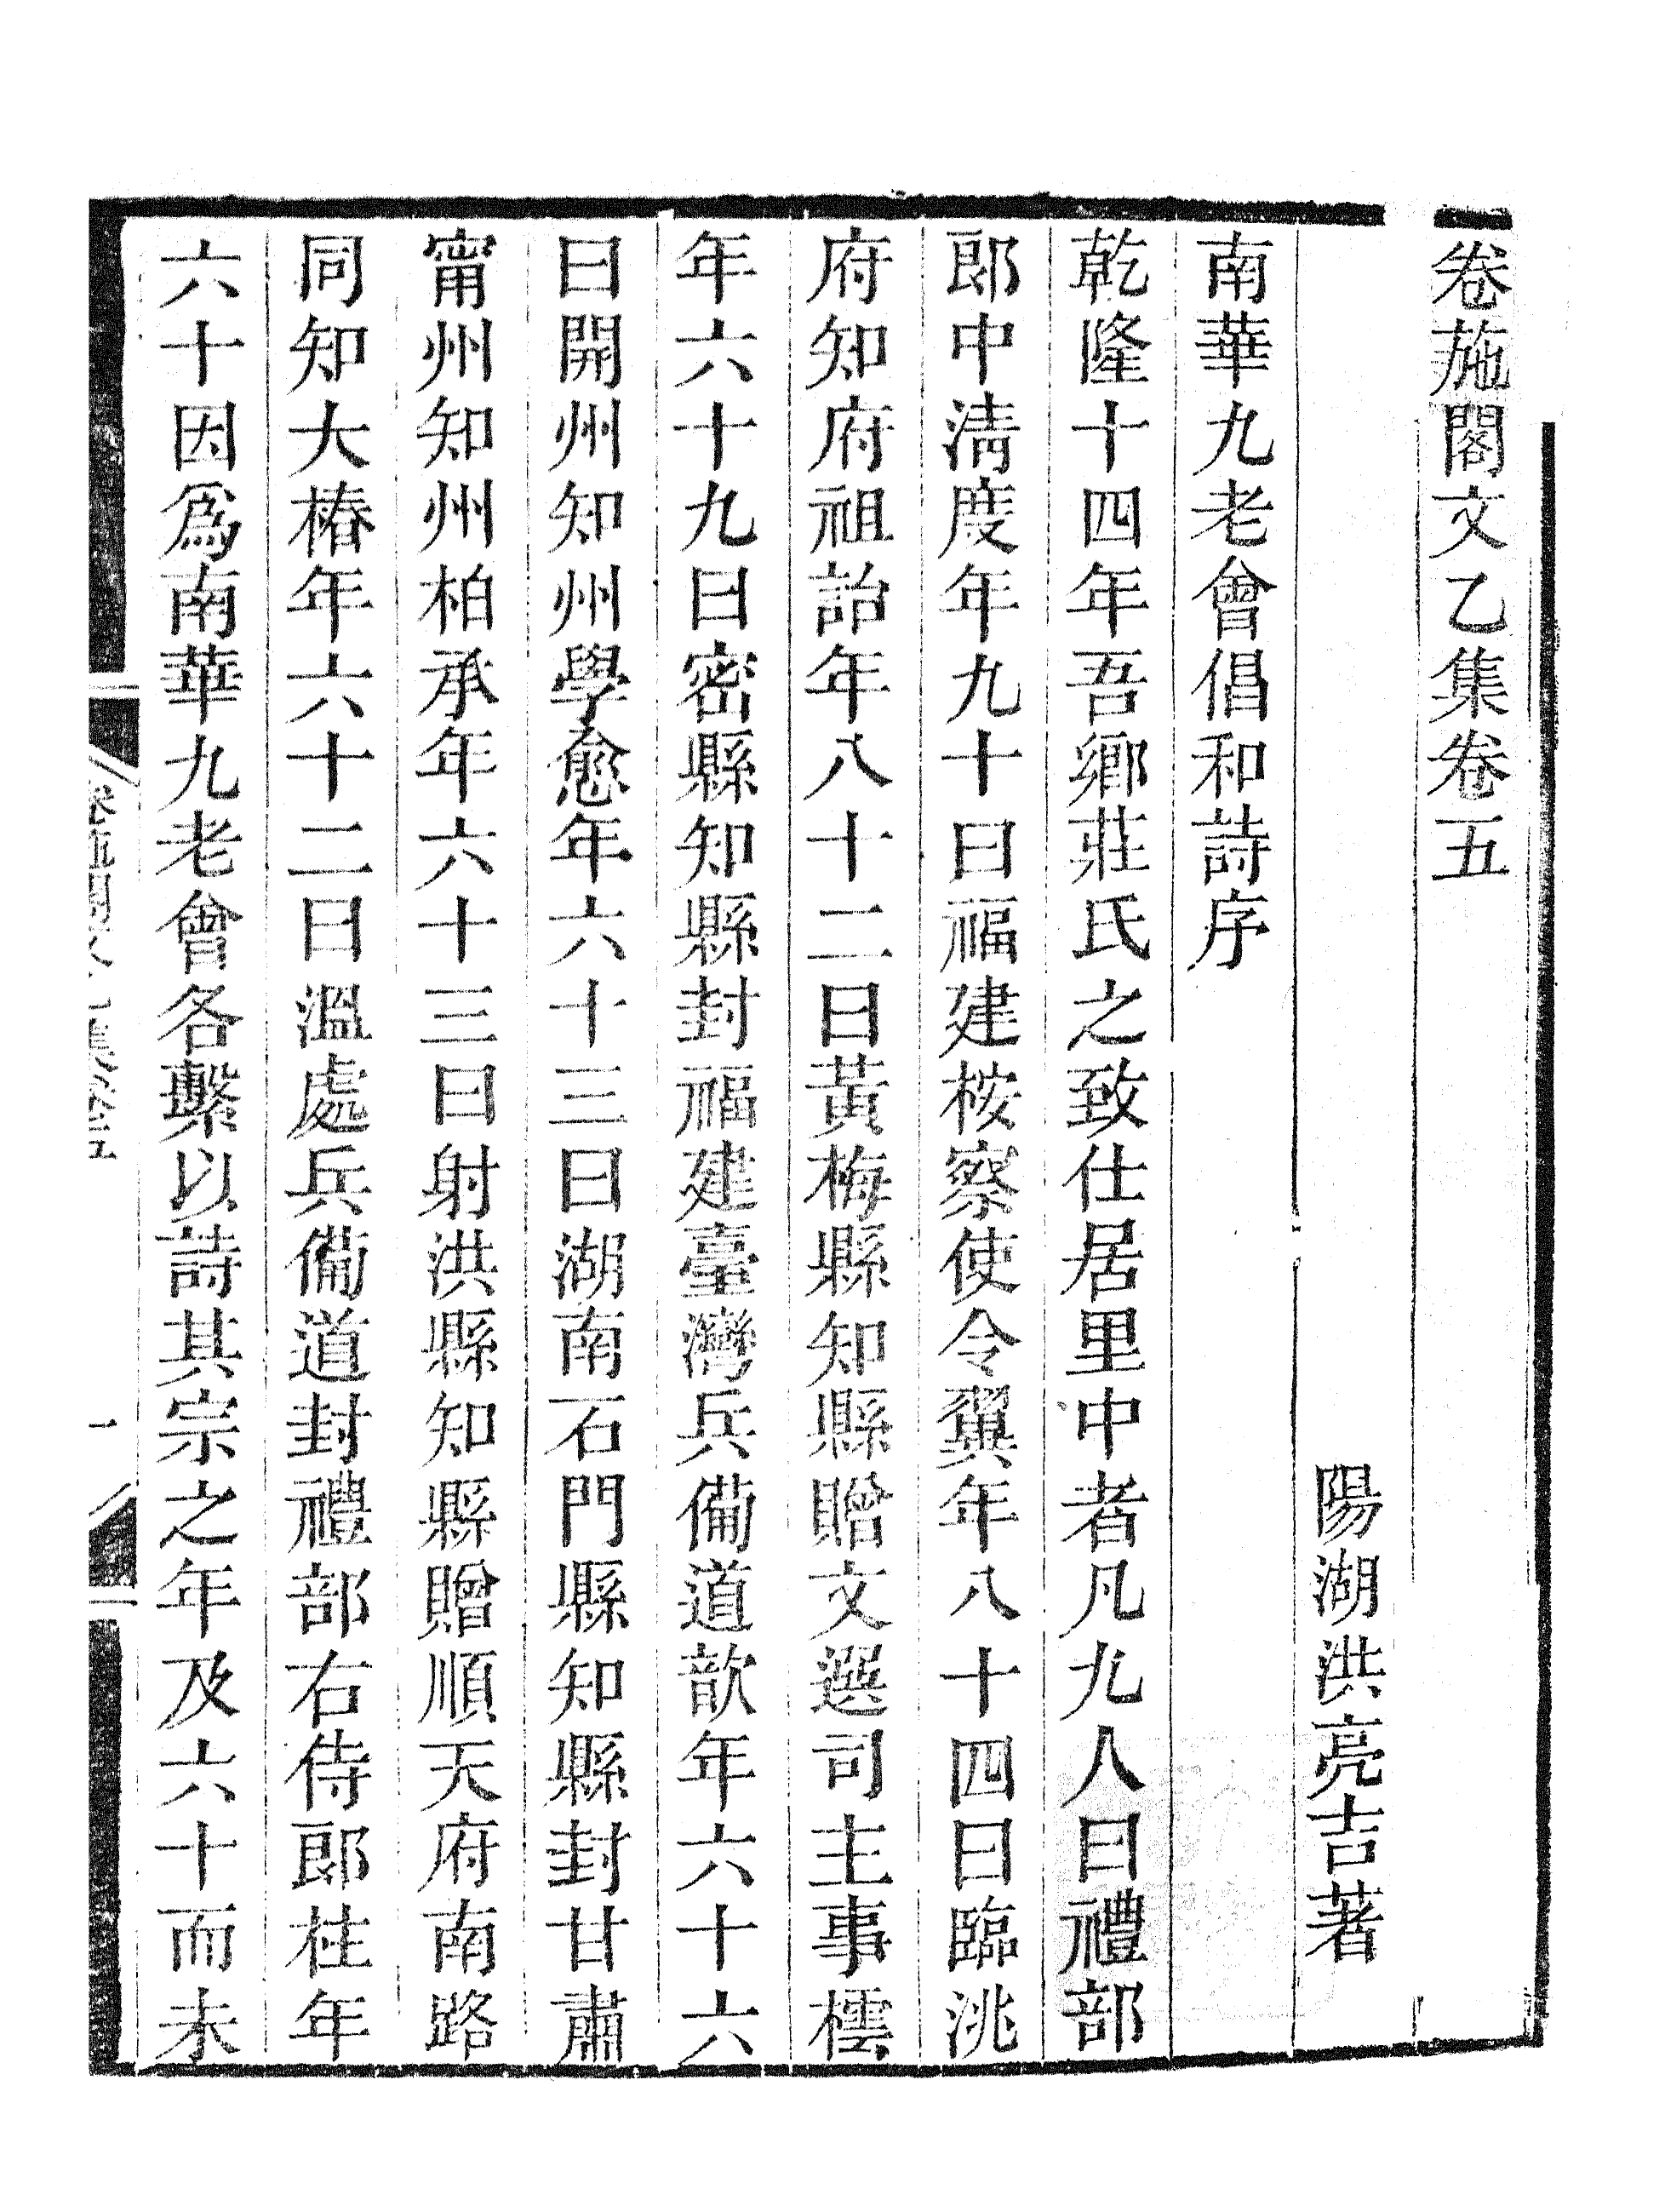 卷葹閣文乙集卷五
陽湖洪亮吉著
南華九老會倡和詩序
乾隆十四年吾鄉莊氏之致仕居里中者凡九人曰禮部
郎中淸度年九十曰福建按察使令翼年八十四曰臨洮
府知府祖詒年八十二曰黃梅縣知縣贈文選司主事橒
年六十九曰密縣知縣封福建臺灣兵備道歆年六十六
曰開州知州學愈年六十三曰湖南石門縣知縣封甘肅
甯州知州柏承年六十三曰射洪縣知縣贈順天府南路
同知大椿年六十二曰溫處兵備道封禮部右侍郎柱年
六十因爲南華九老會各繫以詩其宗之年及六十而未